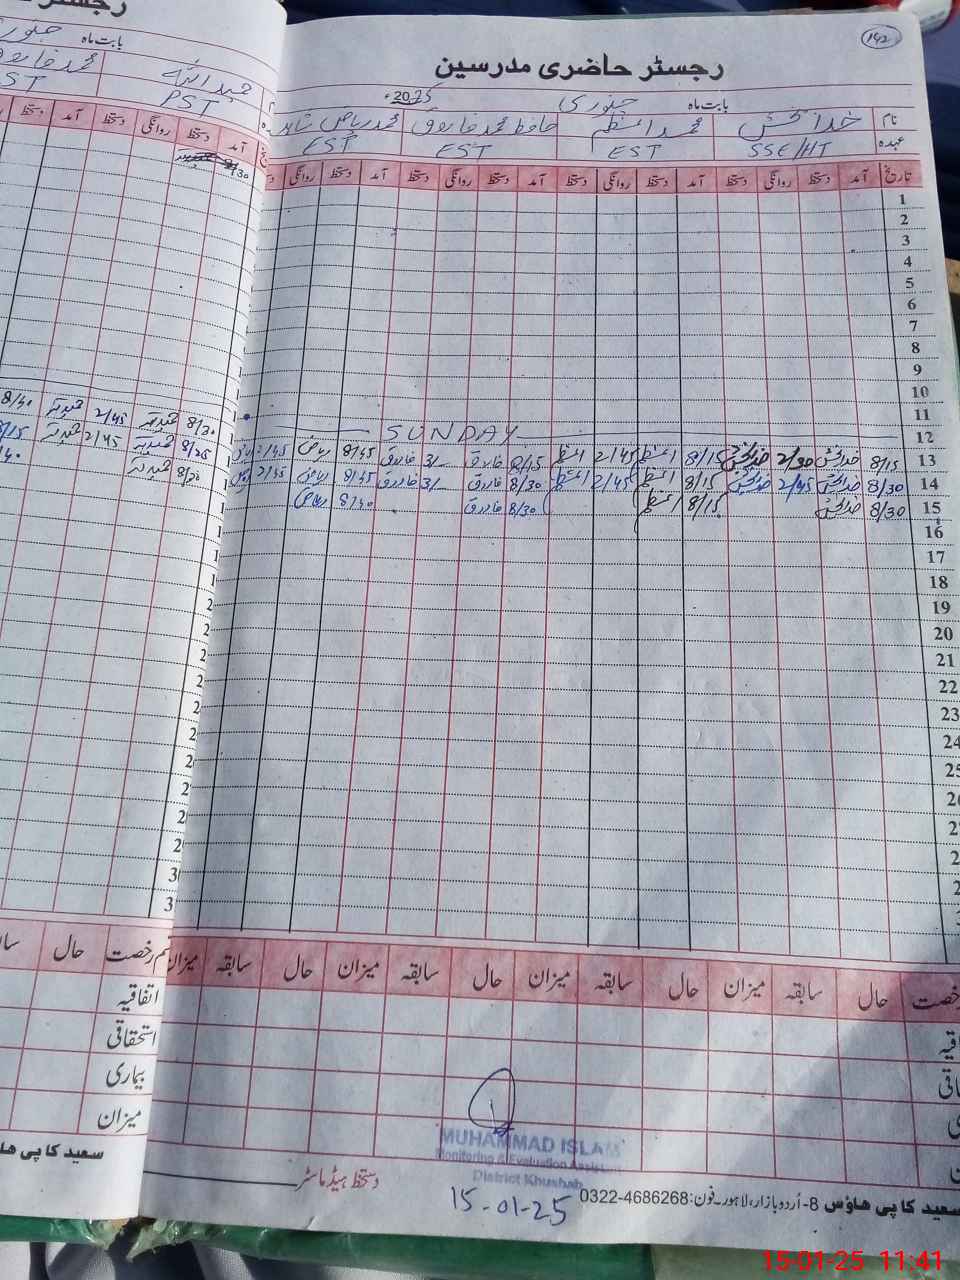 142
رجسٹر حاضری مدرسین
بابت ماہ جنوری 2025ء
نام خدا بخش محمد اعظم حافظ محمد فاروق محمد ریاض شاہد
عہدہ SSE/HT EST EST EST
تاریخ آمد دستخط روانگی دستخط آمد دستخط روانگی دستخط آمد دستخط روانگی دستخط آمد دستخط روانگی
1
2
3
4
5
6
7
8
9
10
11
12 SUNDAY
13 8/15 خدا بخش 2/30 خدا بخش 8/15 اعظم 2/45 اعظم 8/15 فاروق 3/- فاروق 8/45 ریاض 2/45 ریاض
14 8/30 خدا بخش 2/45 خدا بخش 8/15 اعظم 2/45 اعظم 8/30 فاروق 3/- فاروق 8/45 ریاض 2/45
15 8/30 خدا بخش 8/15 اعظم 8/30 فاروق 8/40 ریاض
16
17
18
19
20
21
22
23
24
25
رخصت حال سابقہ میزان حال سابقہ میزان حال سابقہ میزان حال سابقہ میزان
MUHAMMAD ISLAM
Monitoring & Evaluation Assistant
District Khushab
15-01-25
دستخط ہیڈ ماسٹر
سعید کاپی ہاؤس 8-اُردو بازار، لاہور۔فون:0322-4686268
بابت ماہ
PST
آمد دستخط روانگی دستخط آمد دستخط
8/30
8/30 2/45 8/40
8/25 2/45 8/15
8/20
رخصت حال
اتفاقیہ
استحقاقی
بیماری
میزان
سعید کاپی
15-01-25 11:41